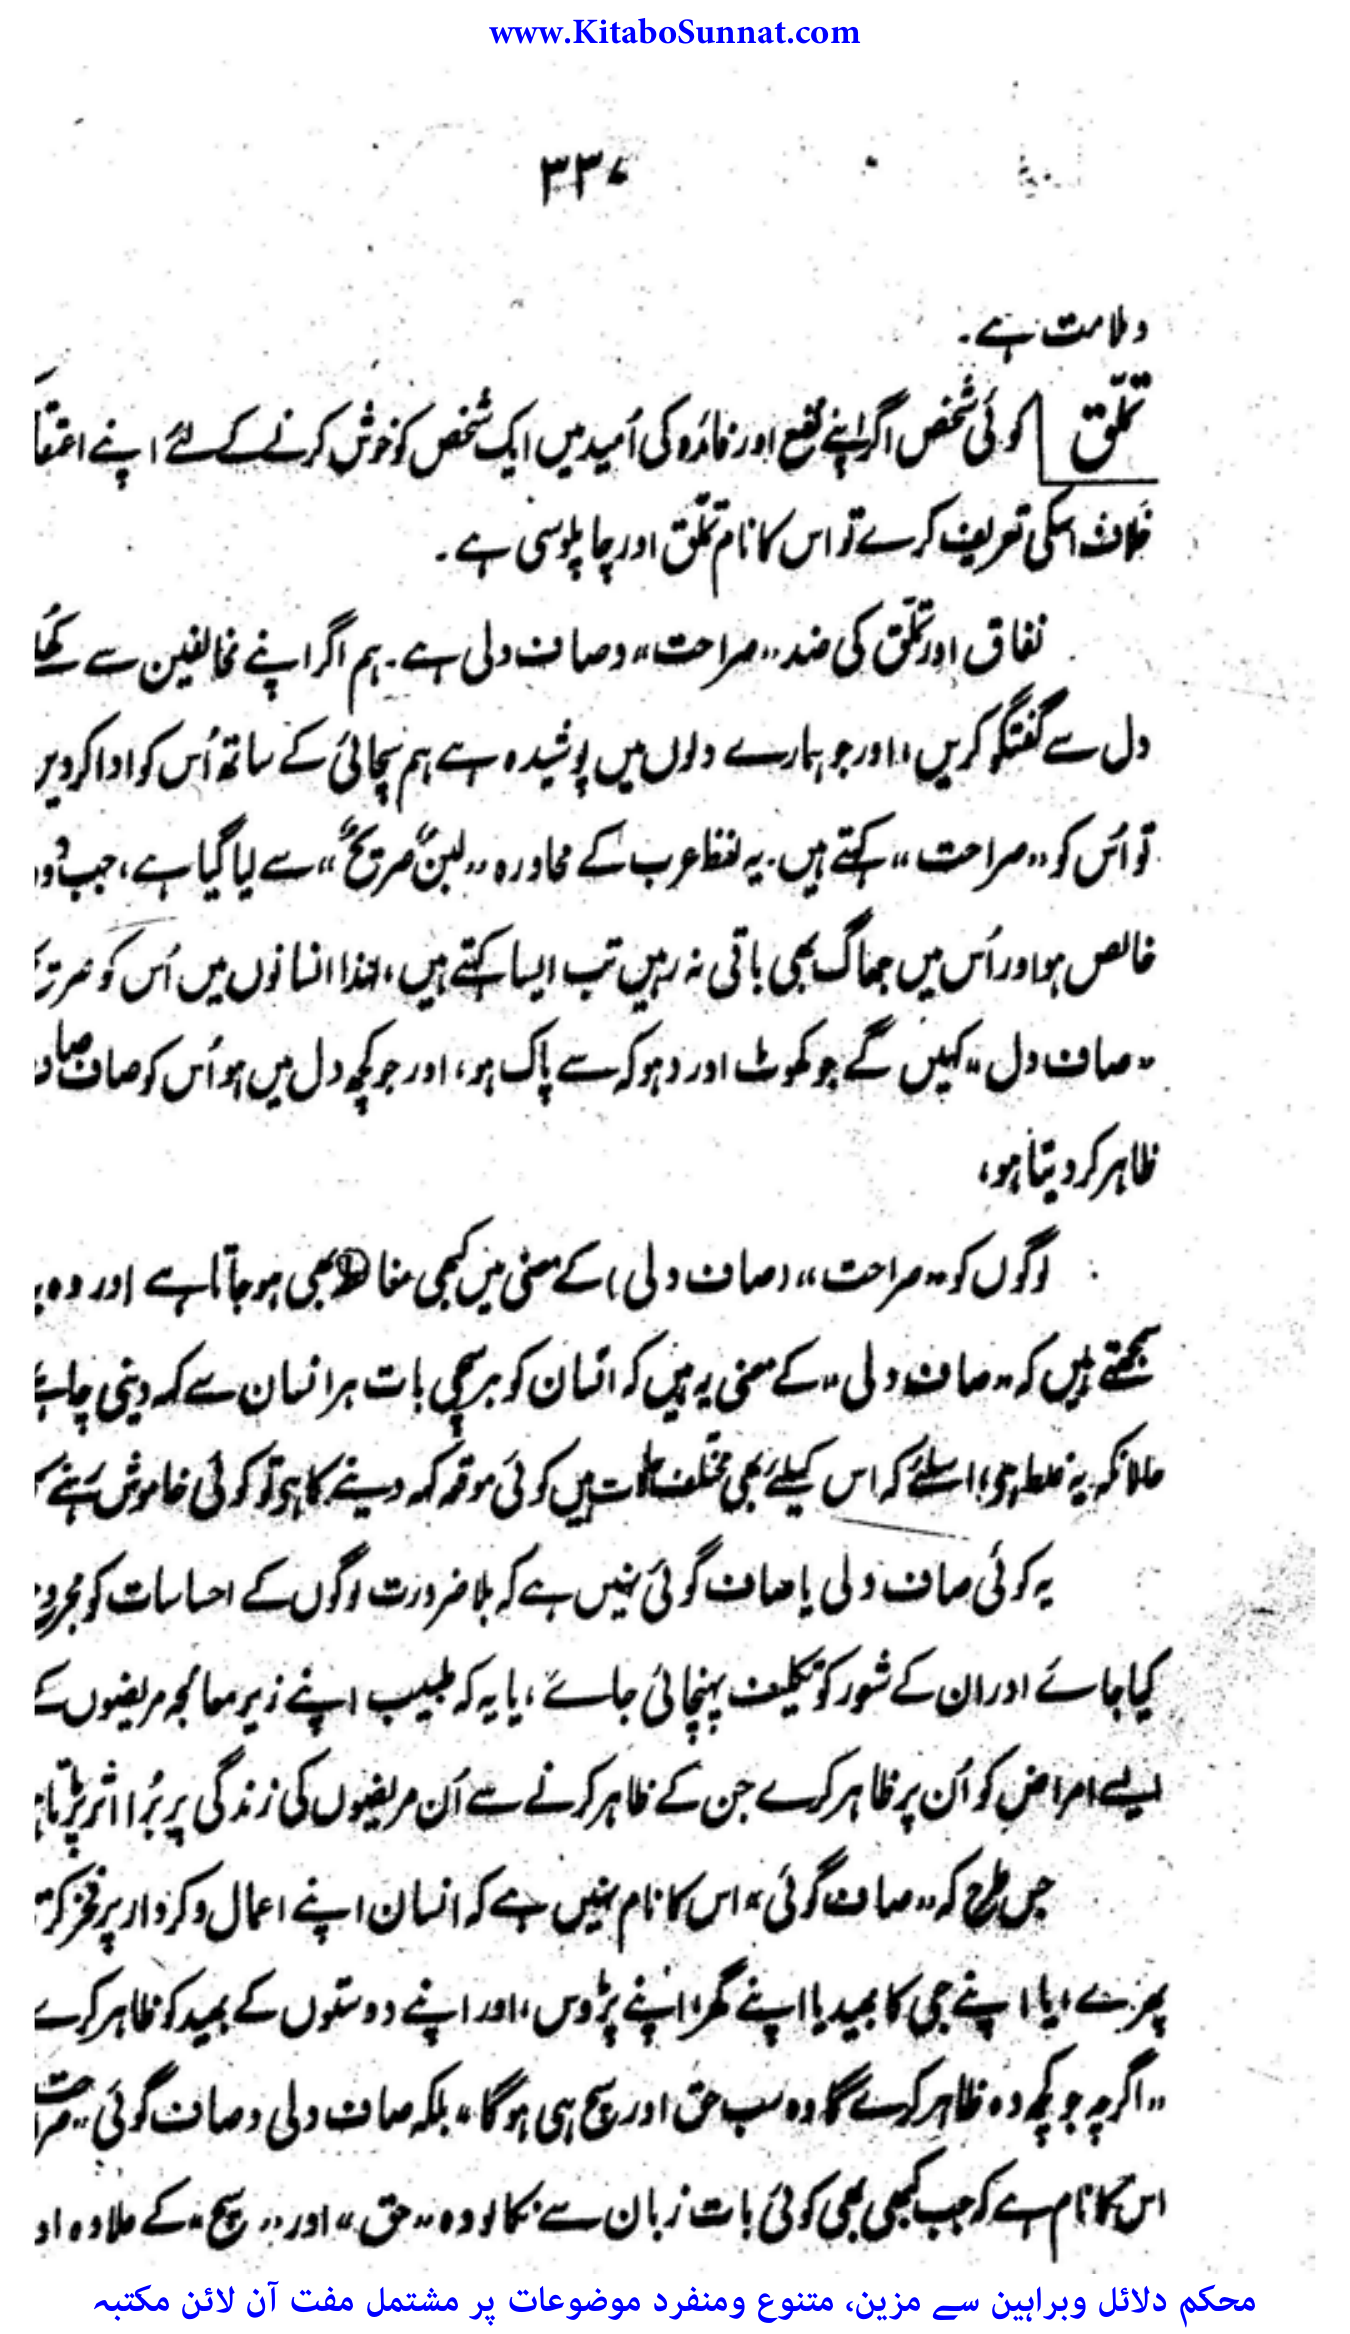 www.KitaboSunnat.com
۳۳۷
و ملامت ہے۔
تملّق کوئی شخص اگر اپنے نفع اور فائدہ کی اُمید میں ایک شخص کو خوش کرنے کے لئے اپنے
خلاف اسکی تعریف کرے تو اس کا نام تملّق اور چاپلوسی ہے۔
نفاق اور تملّق کی ضد ،،صراحت،، و صاف دلی ہے۔ ہم اگر اپنے مخالفین سے
دل سے گفتگو کریں، اور جو ہمارے دلوں میں پوشیدہ ہے ہم سچائی کے ساتھ اُس کو ادا کردیں
تو اُس کو ،،صراحت،، کہتے ہیں۔ یہ لفظ عرب کے محاورہ ،،لبنٌ صریحٌ،، سے لیا گیا ہے، جب
خالص ہو اور اُس میں جھاگ بھی باقی نہ رہیں تب ایسا کہتے ہیں، لہٰذا انسانوں میں اُس کو
،،صاف دل،، کہیں گے جو کھوٹ اور دہوکہ سے پاک ہو، اور جو کچھ دل میں ہو اُس کو صاف صاف
ظاہر کر دیتا ہو،
لوگوں کو ،،صراحت،، (صاف دلی) کے معنی میں کبھی مغالطہ بھی ہو جاتا ہے اور وہ یہ
سمجھتے ہیں کہ ،،صاف دلی،، کے معنی یہ ہیں کہ انسان کو ہر سچی بات ہر انسان سے کہہ دینی چاہئے
حالانکہ یہ غلط ہی، اسلئے کہ اس کیلئے بھی مختلف حالات ہیں کوئی موقعہ کہہ دینے کا ہی تو کوئی خاموش رہنے
یہ کوئی صاف دلی یا صاف گوئی نہیں ہے کہ بلا ضرورت لوگوں کے احساسات کو مجروح
کیا جائے اور ان کے شعور کو تکلیف پہنچائی جائے، یا یہ کہ طبیب اپنے زیر معالجہ مریضوں کے
ایسے امراض کو اُن پر ظاہر کرے جن کے ظاہر کرنے سے اُن مریضوں کی زندگی پر بُرا اثر پڑتا
جس طرح کہ ،،صاف گوئی،، اس کا نام نہیں ہے کہ انسان اپنے اعمال و کردار پر فخر کرتا
پھرے، یا اپنے جی کا بھید یا اپنے گھر، اپنے پڑوس، اور اپنے دوستوں کے بھید کو ظاہر کرے
،،اگرچہ جو کچھ وہ ظاہر کرے گا وہ سب حق اور سچ ہی ہوگا،، بلکہ صاف دلی و صاف گوئی ،،صراحت
اس کا نام ہے کہ جب کبھی بھی کوئی بات زبان سے نکالو وہ ،،حق،، اور ،،سچ،، کے علاوہ او
محکم دلائل وبراہین سے مزین، متنوع ومنفرد موضوعات پر مشتمل مفت آن لائن مکتبہ